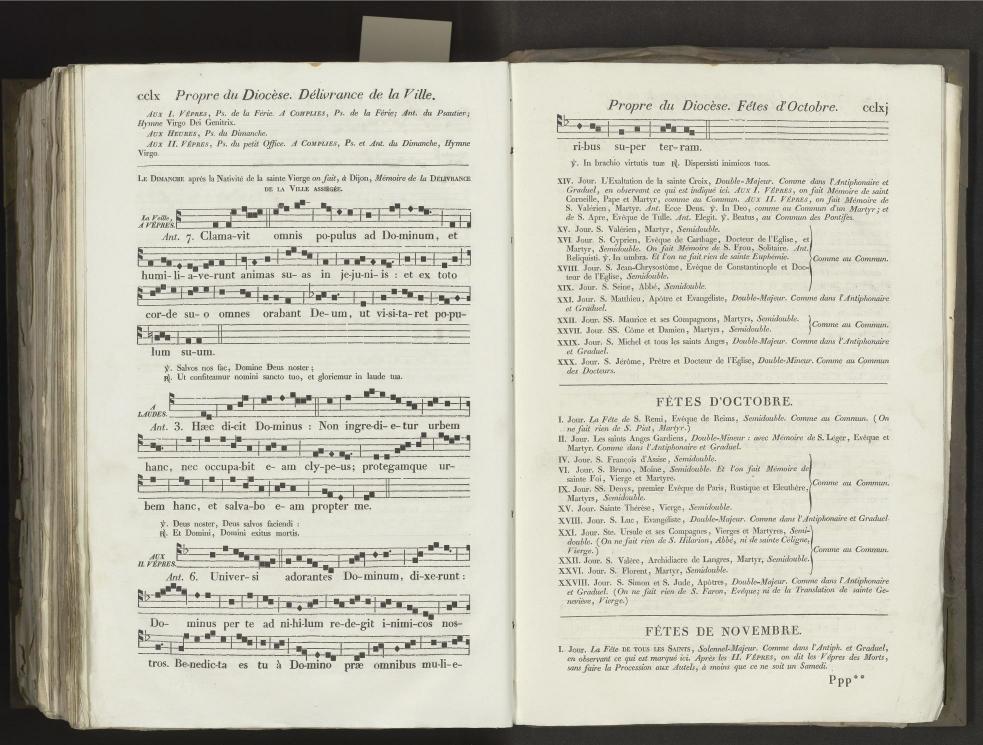 cclx Propre du Diocèse. Délivrance de la Ville.
AUX I. VÊPRES, Ps. de la Férie. A COMPLIES, Ps. de la Férie; Ant. du Psautier;
Hymne Virgo Dei Genitrix.
AUX HEURES, Ps. du Dimanche.
AUX II. VÊPRES, Ps. du petit Office. A COMPLIES, Ps. et Ant. du Dimanche, Hymne
Virgo.
LE DIMANCHE après la Nativité de la sainte Vierge on fait, à Dijon, Mémoire de la DÉLIVRANCE
DE LA VILLE ASSIÉGÉE.
La Veille,
A VÊPRES.
Ant. 7. Clama-vit omnis po-pulus ad Do-minum, et
humi-li-a-ve-runt animas su-as in je-ju-ni-is : et ex toto
cor-de su-o omnes orabant De-um, ut vi-si-ta-ret po-pu-
lum su-um.
℣. Salvos nos fac, Domine Deus noster ;
℟. Ut confiteamur nomini sancto tuo, et gloriemur in laude tua.
A
LAUDES.
Ant. 3. Hæc di-cit Do-minus : Non ingre-di-e-tur urbem
hanc, nec occupa-bit e-am cly-pe-us; protegamque ur-
bem hanc, et salva-bo e-am propter me.
℣. Deus noster, Deus salvos faciendi :
℟. Et Domini, Domini exitus mortis.
AUX
II. VÊPRES.
Ant. 6. Univer-si adorantes Do-minum, di-xe-runt :
Do- minus per te ad ni-hi-lum re-de-git i-nimi-cos nos-
tros. Be-nedic-ta es tu à Do-mino præ omnibus mu-li-e-
Propre du Diocèse. Fêtes d'Octobre. cclxj
ri-bus su-per ter-ram.
℣. In brachio virtutis tuæ ℟. Dispersisti inimicos tuos.
XIV. Jour. L'Exaltation de la sainte Croix, Double-Majeur. Comme dans l'Antiphonaire et
Graduel, en observant ce qui est indiqué ici. AUX I. VÊPRES, on fait Mémoire de saint
Corneille, Pape et Martyr, comme au Commun. AUX II. VÊPRES, on fait Mémoire de
S. Valérien, Martyr. Ant. Ecce Deus. ℣. In Deo, comme au Commun d'un Martyr; et
de S. Apre, Evêque de Tulle. Ant. Elegit. ℣. Beatus, au Commun des Pontifes.
XV. Jour. S. Valérien, Martyr, Semidouble.
XVI Jour. S. Cyprien, Evêque de Carthage, Docteur de l'Eglise, et
Martyr, Semidouble. On fait Mémoire de S. Frou, Solitaire. Ant.
Reliquisti. ℣. In umbra. Et l'on ne fait rien de sainte Euphémie.
Comme au Commun.
XVIII. Jour. S. Jean-Chrysostôme, Evêque de Constantinople et Doc-
teur de l'Eglise, Semidouble.
XIX. Jour. S. Seine, Abbé, Semidouble.
XXI. Jour. S. Matthieu, Apôtre et Evangéliste, Double-Majeur. Comme dans l'Antiphonaire
et Graduel.
XXII. Jour. SS. Maurice et ses Compagnons, Martyrs, Semidouble.
XXVII. Jour. SS. Côme et Damien, Martyrs, Semidouble.
Comme au Commun.
XXIX. Jour. S. Michel et tous les saints Anges, Double-Majeur. Comme dans l'Antiphonaire
et Graduel.
XXX. Jour. S. Jérôme, Prêtre et Docteur de l'Eglise, Double-Mineur. Comme au Commun
des Docteurs.
FÊTES D'OCTOBRE.
I. Jour. La Fête de S. Remi, Evêque de Reims, Semidouble. Comme au Commun. (On
ne fait rien de S. Piat, Martyr.)
II. Jour. Les saints Anges Gardiens, Double-Mineur : avec Mémoire de S. Léger, Evêque et
Martyr. Comme dans l'Antiphonaire et Graduel.
IV. Jour. S. François d'Assise, Semidouble.
VI. Jour. S. Bruno, Moine, Semidouble. Et l'on fait Mémoire de
sainte Foi, Vierge et Martyre.
IX. Jour. SS. Denys, premier Evêque de Paris, Rustique et Eleuthère,
Comme au Commun.
Martyrs, Semidouble.
XV. Jour. Sainte Thérèse, Vierge, Semidouble.
XVIII. Jour. S. Luc, Evangéliste, Double-Majeur. Comme dans l'Antiphonaire et Graduel
XXI. Jour. Ste. Ursule et ses Compagnes, Vierges et Martyres, Semi-
double. (On ne fait rien de S. Hilarion, Abbé, ni de sainte Céligne,
Vierge.)
Comme au Commun.
XXII. Jour. S. Valère, Archidiacre de Langres, Martyr, Semidouble.
XXVI. Jour. S. Florent, Martyr, Semidouble.
XXVIII. Jour. S. Simon et S. Jude, Apôtres, Double-Majeur. Comme dans l'Antiphonaire
et Graduel. (On ne fait rien de S. Faron, Evêque; ni de la Translation de sainte Ge-
neviève, Vierge.)
FÊTES DE NOVEMBRE.
I. Jour. La Fête DE TOUS LES SAINTS, Solennel-Majeur. Comme dans l'Antiph. et Graduel,
en observant ce qui est marqué ici. Après les II. VÊPRES, on dit les Vêpres des Morts,
sans faire la Procession aux Autels, à moins que ce ne soit un Samedi.
Ppp**